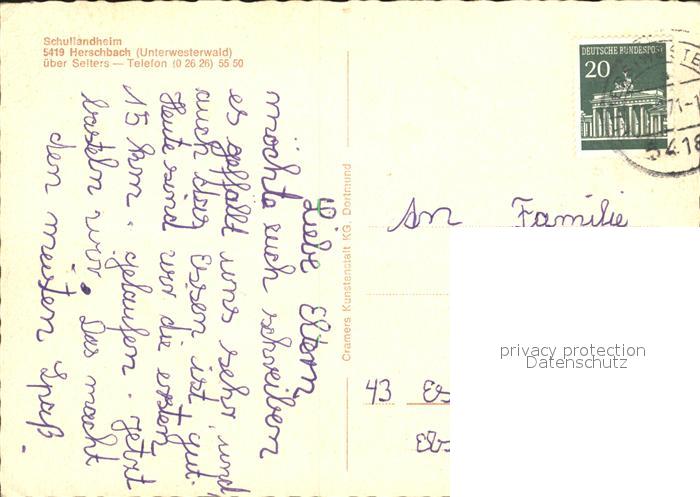 Schullandheim
5419 Herschbach (Unterwesterwald)
über Selters — Telefon (0 26 26) 55 50
Liebe Eltern,
möchte euch schreiben
es gefällt uns sehr, und
auch das Essen ist gut.
Heute sind wir die ersten
15 km. gelaufen. jetzt
basteln wir. Das macht
den meisten Spaß.
Cramers Kunstanstalt KG, Dortmund
DEUTSCHE BUNDESPOST
20
71-1
5418
An Familie
43 Es
privacy protection
Datenschutz